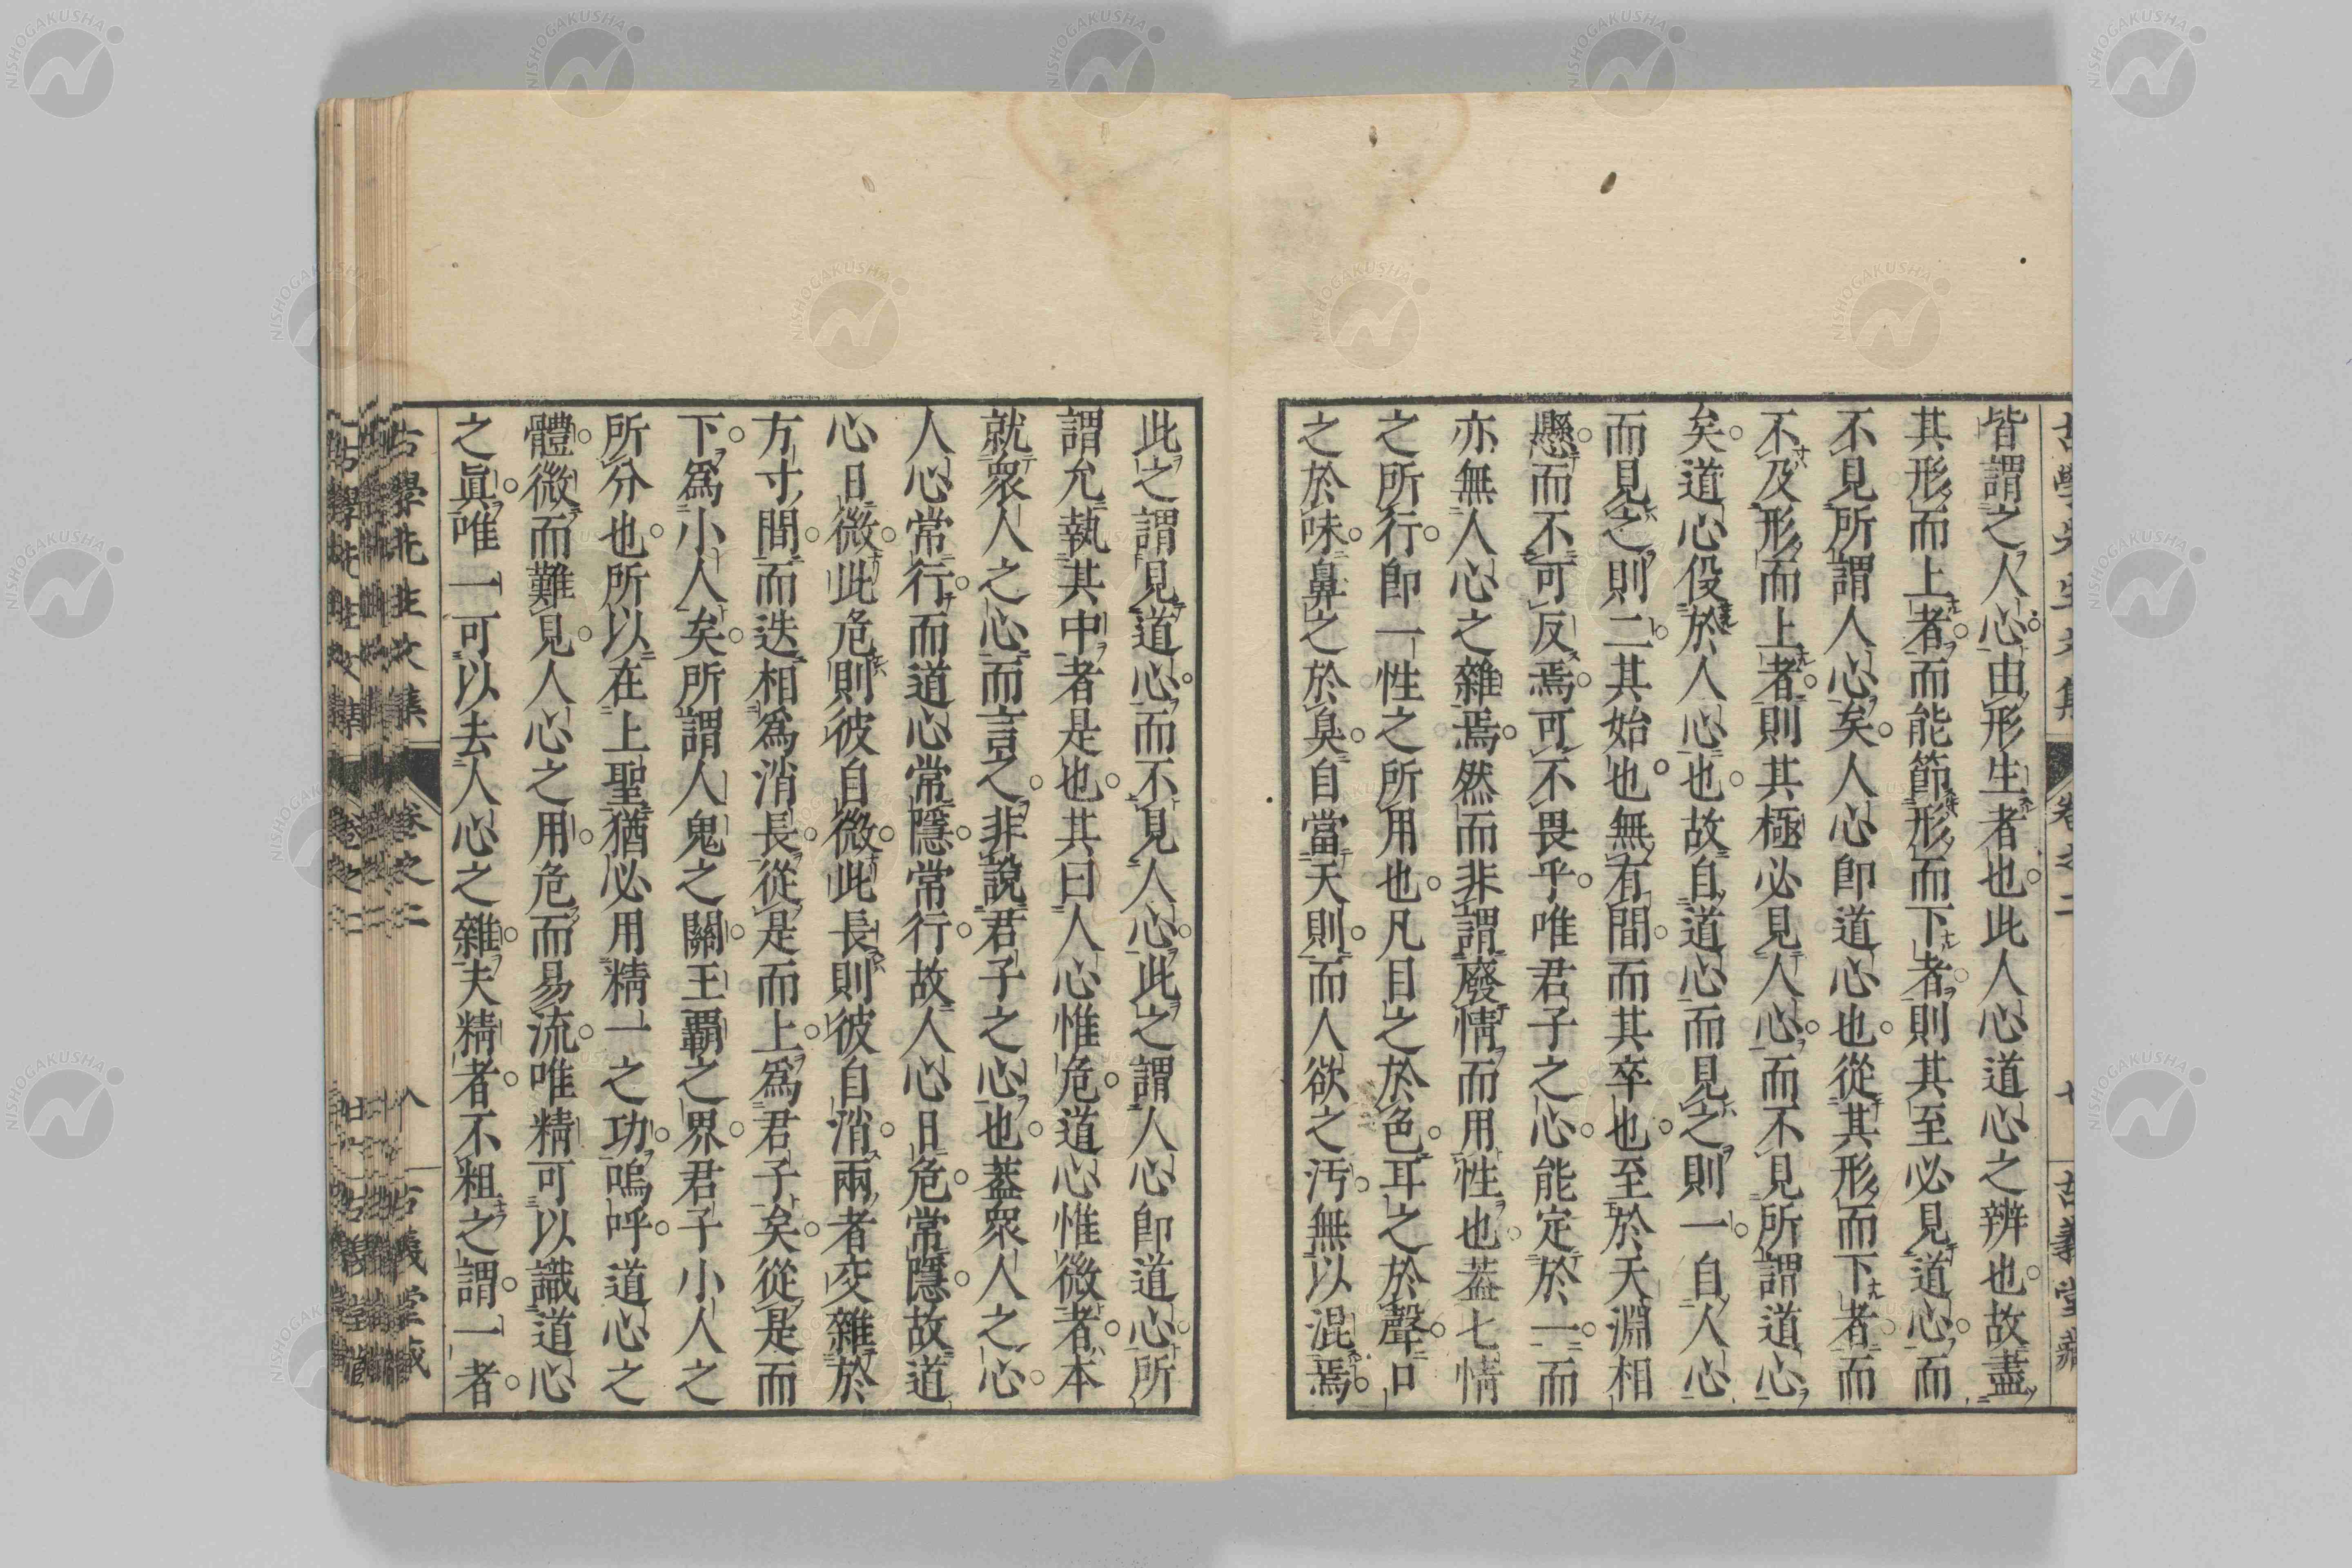 皆謂之人心由形生者也此人心道心之辨也故盡
其形而上者而能節形而下者則其至必見道心而
不見所謂人心矣人心即道心也從其形而下者而
不及形而上者則其極必見人心而不見所謂道心
矣道心役於人心也故自道心而見之則一自人心
而見之則二其始也無有間而其卒也至於天淵相
懸而不可反焉可不畏乎唯君子之心能定於一而
亦無人心之雜焉然而非謂廢情而用性也葢七情
之所行即一性之所用也凡目之於色耳之於聲口
之於味鼻之於臭自當天則而人欲之汚無以混焉
此之謂見道心而不見人心此之謂人心即道心所
謂允執其中者是也其曰人心惟危道心惟微者本
就衆人之心而言之非說君子之心也葢衆人之心
人心常行而道心常隱常行故人心日危常隱故道
心日微此危則彼自微此長則彼自消兩者交雜於
方寸間而迭相爲消長從是而上爲君子矣從是而
下爲小人矣所謂人鬼之關王覇之界君子小人之
所分也所以在上聖猶必用精一之功嗚呼道心之
體微而難見人心之用危而易流唯精可以識道心
之眞唯一可以去人心之雜夫精者不粗之謂一者
古學先生文集 卷之二 八 古義堂藏